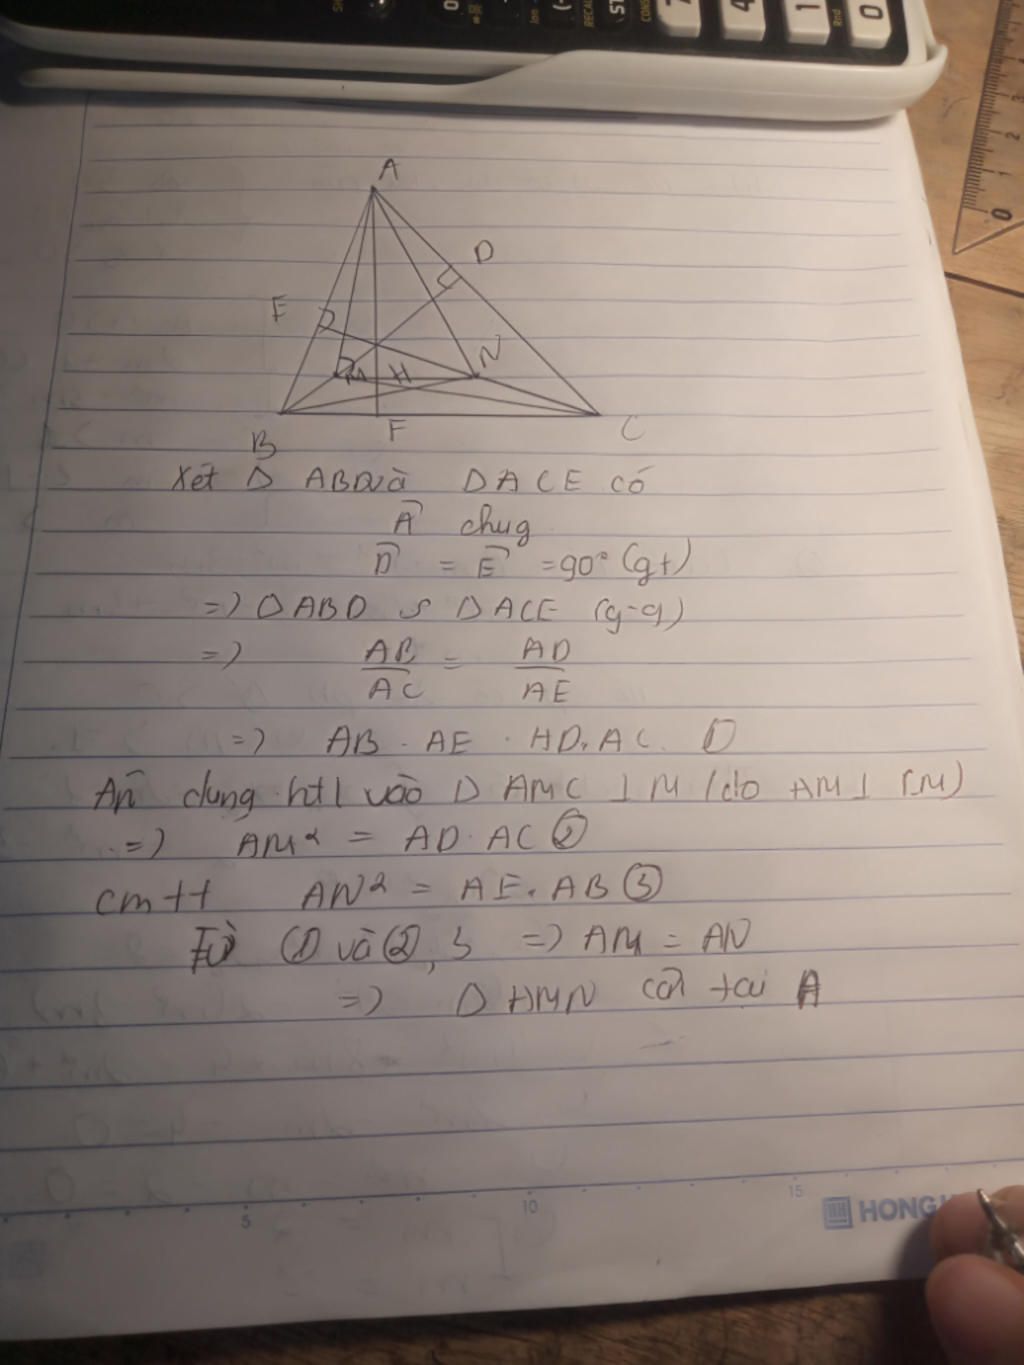 A
D
E
N
M
H
B
F
C
Xét Δ ABD và Δ ACE có
Â chug
D̂ = Ê = 90° (gt)
=> Δ ABD ∽ Δ ACE (g-g)
=> AB/AC = AD/AE
=> AB . AE . AD . AC. ①
dung htl vào Δ AMC ⊥ M (do AM ⊥ CM)
=> AM² = AD . AC ②
cmtt AN² = AE . AB ③
Từ ① và ②, 3 => AM = AN
=> Δ AMN cân tai A
5
10
15
HONG
0
1
2
3
7
4
1
0